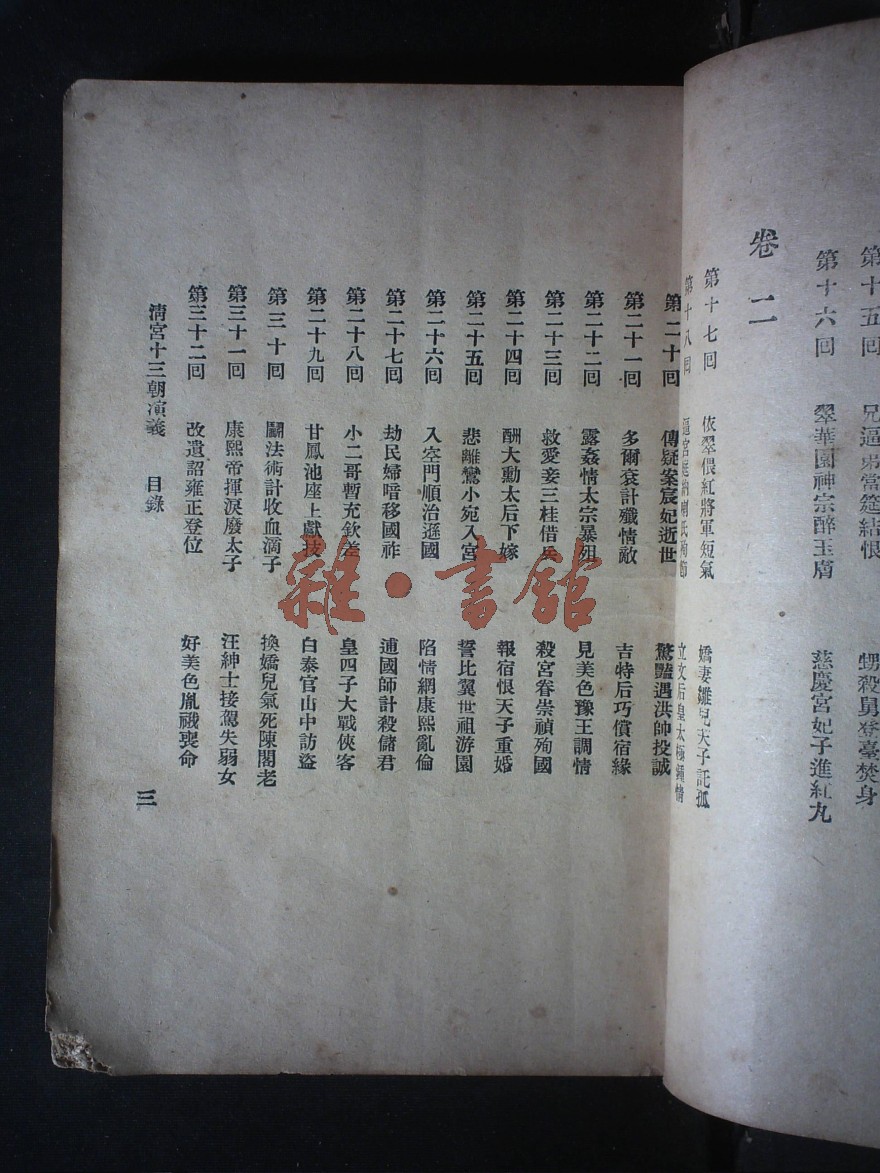 第十五回 兄逼弟當筵結恨 甥殺舅登臺焚身
第十六回 翠華園神宗醉玉膚 慈慶宮妃子進紅丸
卷二
第十七回 依翠偎紅將軍短氣 嬌妻雛兒天子託孤
第十八回 逼宮庭納喇氏殉節 立文后皇太極鍾情
第二十回 傳疑案宸妃逝世 驚豔遇洪帥投誠
第二十一回 多爾袞計殲情敵 吉特后巧償宿緣
第二十二回 露姦情太宗暴殂 見美色豫王調情
第二十三回 救愛妾三桂借兵 殺宮眷崇禎殉國
第二十四回 酬大勳太后下嫁 報宿恨天子重婚
第二十五回 悲離鸞小宛入宮 誓比翼世祖游園
第二十六回 入空門順治遜國 陷情網康熙亂倫
第二十七回 劫民婦暗移國祚 逋國師計殺儲君
第二十八回 小二哥暫充欽差 皇四子大戰俠客
第二十九回 甘鳳池座上獻技 白泰官山中訪盜
第三十回 鬬法術計收血滴子 換嬌兒氣死陳閣老
第三十一回 康熙帝揮淚廢太子 汪紳士接駕失弱女
第三十二回 改遺詔雍正登位 好美色胤禩喪命
清宮十三朝演義 目錄 三
雜·書館